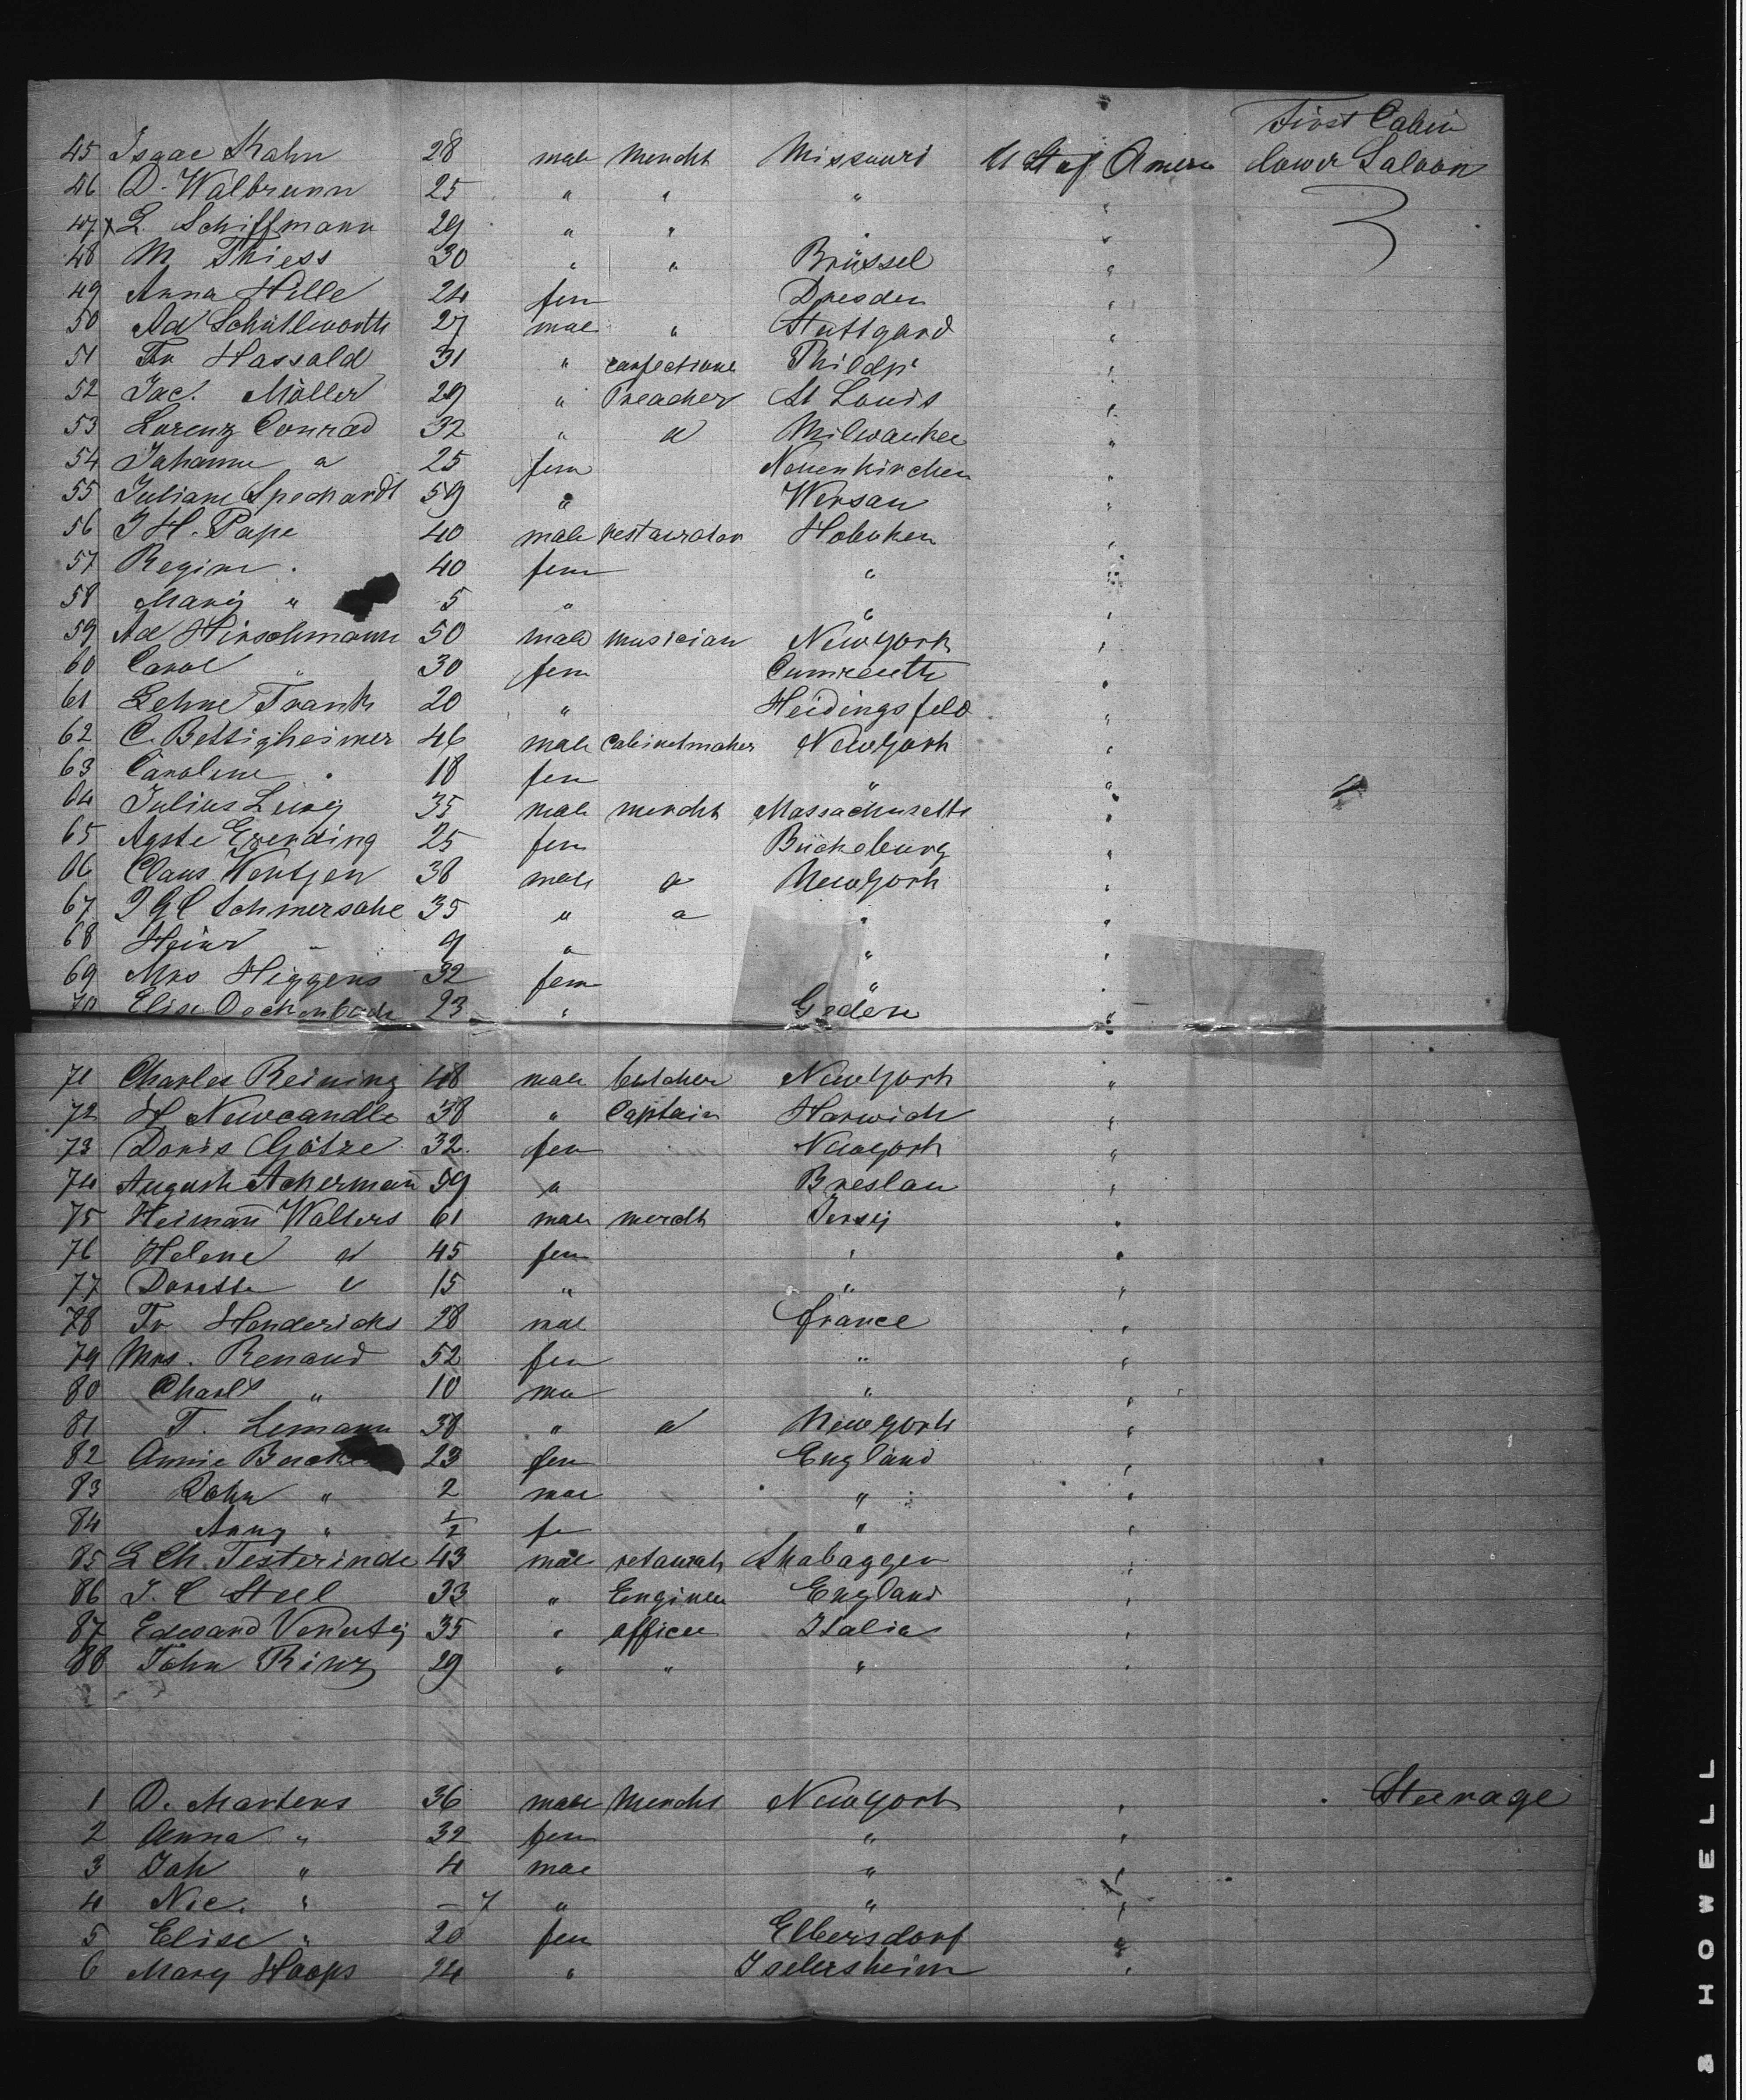 First Cabin
45 Isaac Kahn 28 male Mercht Missouri U St of Amera lower Saloon
46 D. Walbrunn 25 " " " "
47 x L. Schiffmann 29 " " " "
48 M Thiess 30 " " Brüssel "
49 Anna Hille 24 fem Dresden "
50 Ad Schüttleworth 27 male " Stuttgard "
51 Fr Hassold 31 " confectione Phildp "
52 Jac. Möller 29 " Preacher St Louis "
53 Lorenz Conrad 32 " " Milwaukee "
54 Johanne " 25 fem Neuenkirchen "
55 Juliane Spechardt 59 " Wersau "
56 J H. Pape 40 male restaurator Hoboken "
57 Regine " 40 fem " "
58 Mary " 5 " " "
59 Ad Hirschmann 50 male musician NewYork "
60 Carol " 30 fem Cunreuth "
61 Lehne Frank 20 " Heidingsfeld "
62 C. Bettigheimer 46 male Cabinetmaker NewYork "
63 Caroline " 18 fem " "
64 Julius Levy 35 male mercht Massachusetts "
65 Agste Exerding 25 fem Bückeburg "
66 Claus Wentjen 38 male " NewYork "
67 J G C Schmersahe 35 " " " "
68 Heinr " 9 " " "
69 Mrs Higgens 32 fem " "
70 Elise Dechenbach 23 " Gedern "
71 Charles Reining 48 male butcher NewYork "
72 H Newcandle 38 " Captain Harwich "
73 Doris Götze 32 fem NewYork "
74 August Ackermann 59 " Breslau "
75 Heimañ Walters 61 male mercht Jersey "
76 Helene " 45 fem " "
77 Dorette " 15 " " "
78 Fr Henderichs 28 mal france "
79 Mrs. Renaud 52 fem " "
80 Charls " 10 ma " "
81 F. Lemann 38 " " NewYork "
82 Annie 23 fem England "
83 John " 2 mal " "
84 Anny " 1/2 fe " "
85 L Ch. Testerinde 43 male retaurat Skabaggen "
86 J. C Steel 33 " Enginee England "
87 Edward Venuty 35 " officer Italia "
88 John Rinz 29 " " " "
1 D. Martens 36 male Mercht NewYork " Steerage
2 Anna " 32 fem " "
3 Joh " 4 mal " "
4 Nic. " – 7 " " "
5 Elise " 20 fem Elbersdorf "
6 Mary Hoops 24 " Iselersheim "
HOWELL